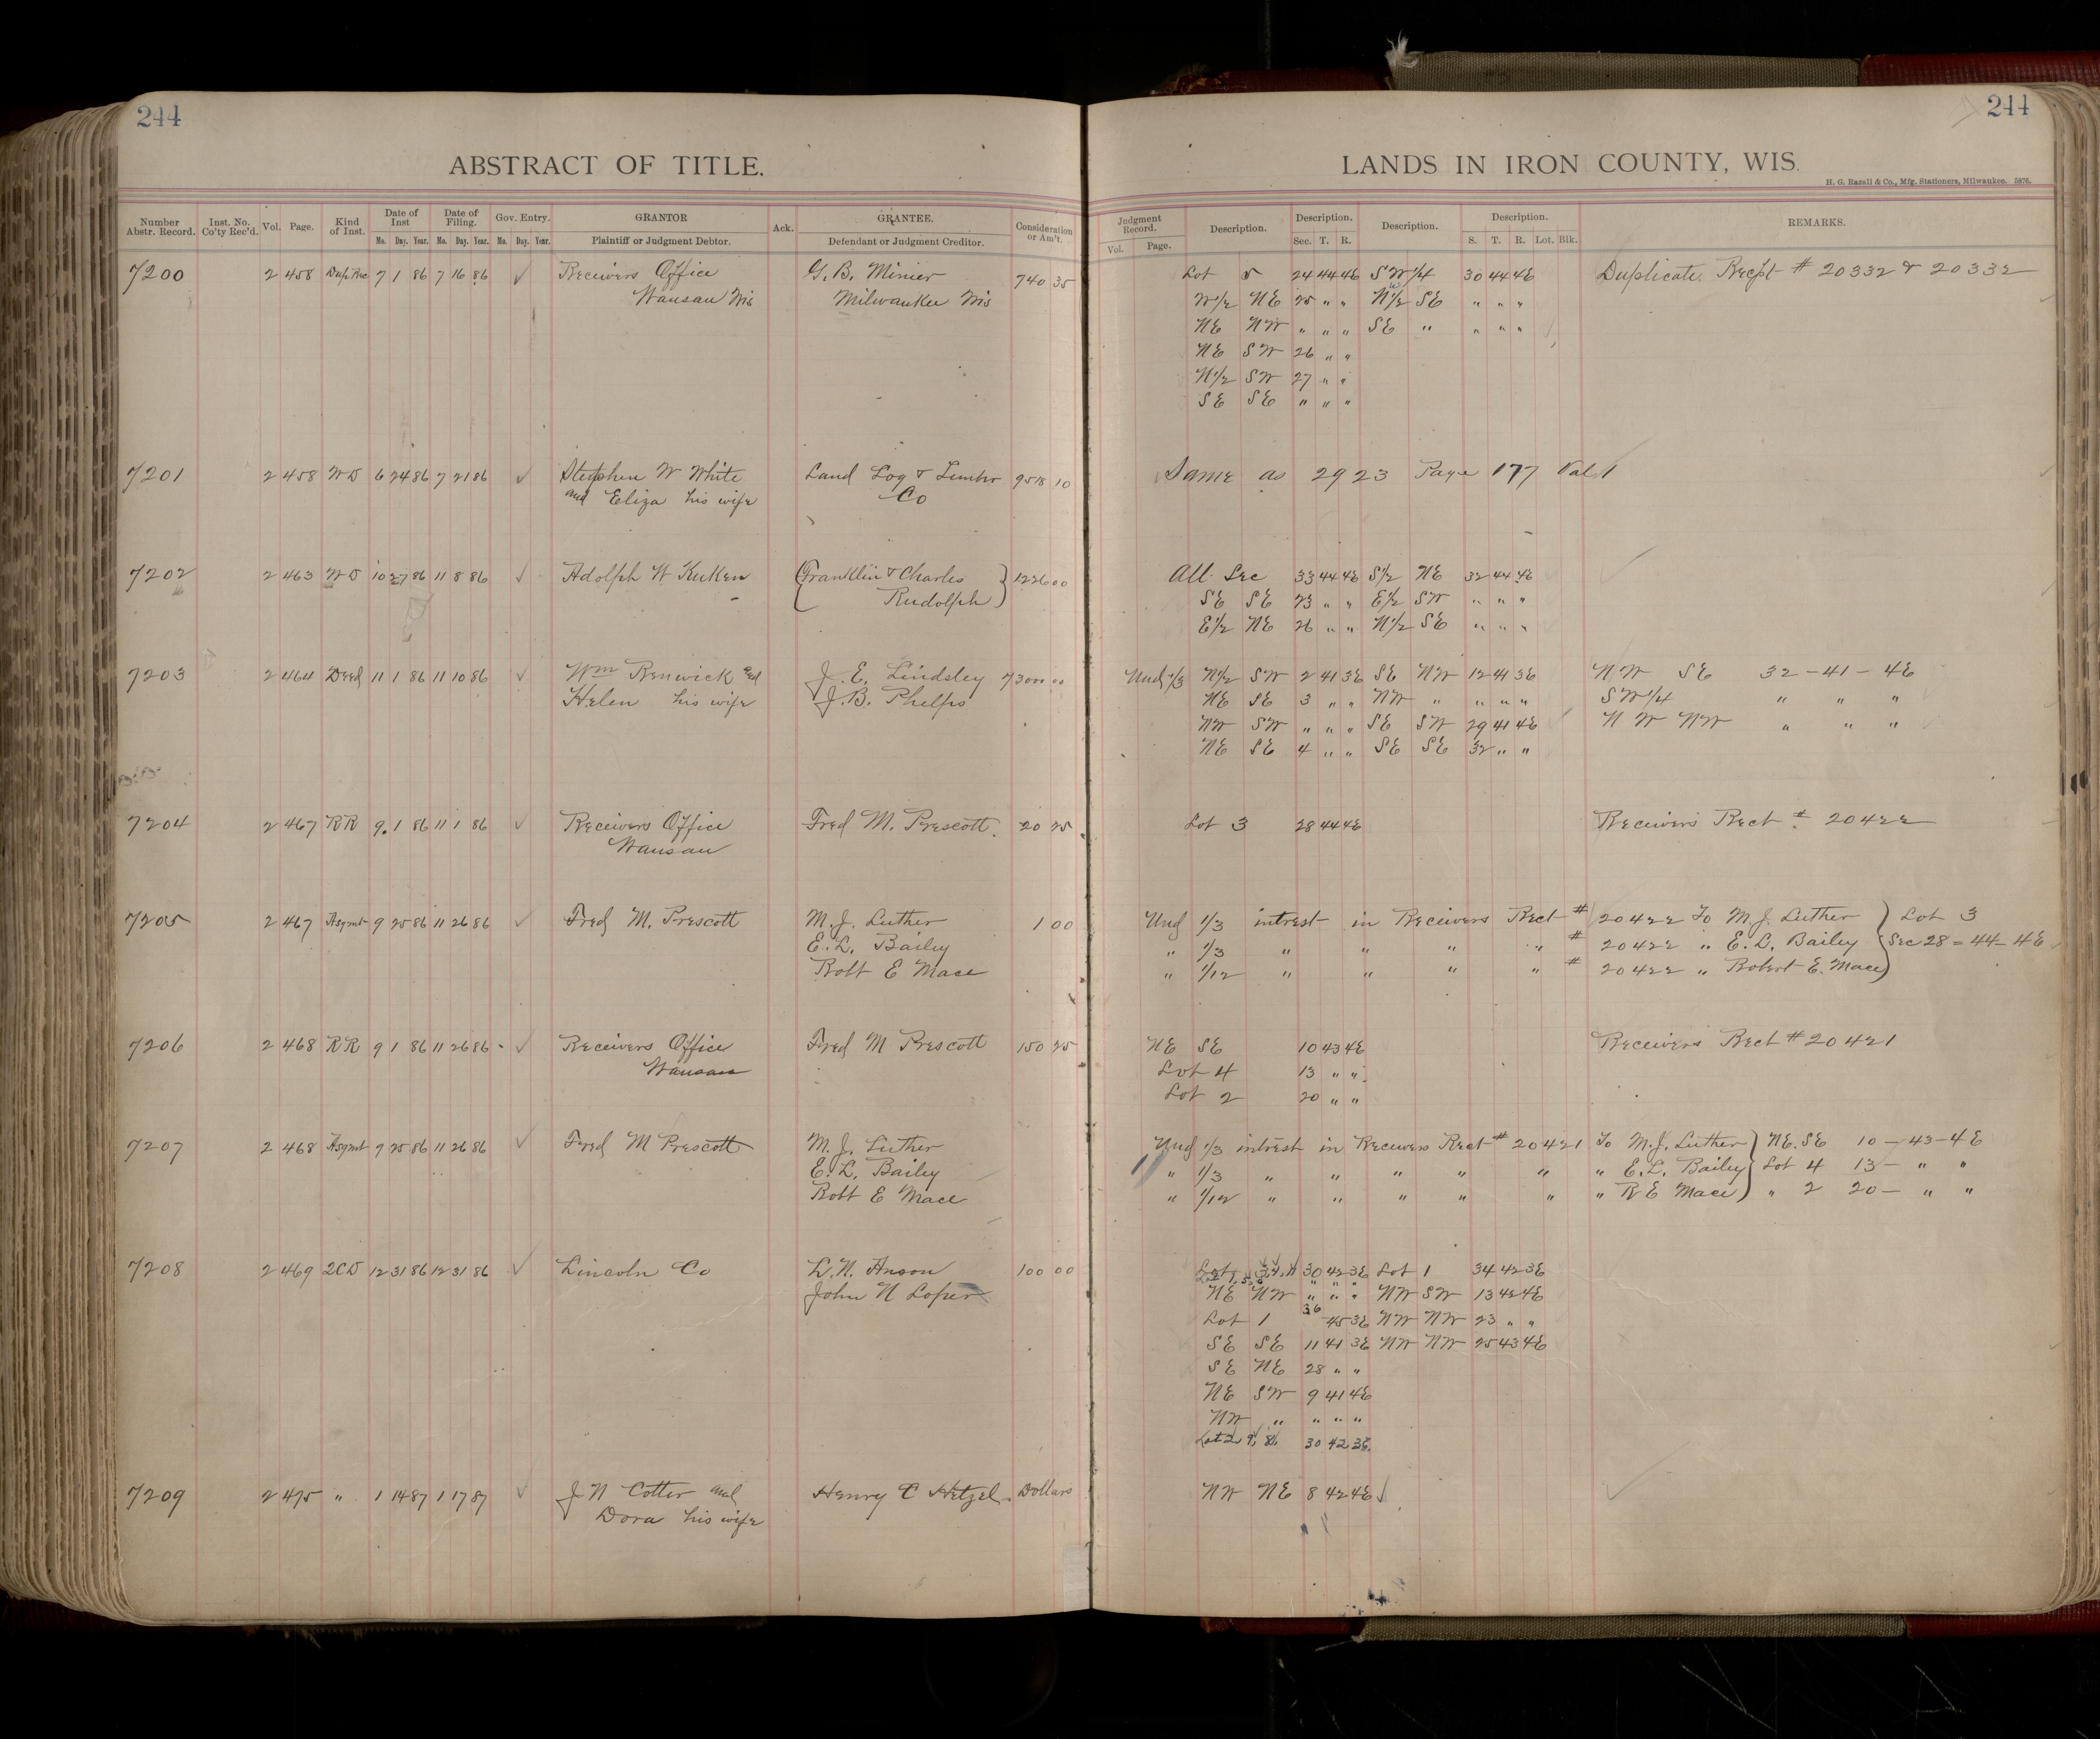 244
244
ABSTRACT OF TITLE.
LANDS IN IRON COUNTY, WIS.
H. G. Razall & Co., Mfg. Stationers, Milwaukee. 5876.
Number Abstr. Record. Inst. No. Co'ty Rec'd. Vol. Page. Kind of Inst. Date of Inst Mo. Day. Year. Date of Filing. Mo. Day. Year. Gov. Entry. Mo. Day. Year. GRANTOR Plaintiff or Judgment Debtor. Ack. GRANTEE. Defendant or Judgment Creditor. Consideration or Am't.
Judgment Record. Vol. Page. Description. Description. Sec. T. R. Description. Description. S. T. R. Lot. Blk. REMARKS.
7200 2 458 Dup Rec 7 1 86 7 16 86 ✓ Receivers Office G. B. Minier 740 35 Lot 5 24 44 4E SW 1/4 30 44 4E Duplicate Recpt # 20332 & 20332
Wausau Wis Milwaukee Wis W1/2 NE 25 " " N1/2 SE " " "
NE NW " " " SE " " " "
NE SW 26 " "
N1/2 SW 27 " "
SE SE " " "
7201 2 458 WD 6 24 86 7 21 86 ✓ Stephen W White Land Log & Lumber 9518 10 Same as 2923 Page 177 Vol 1
and Eliza his wife Co
7202 2 463 WD 10 27 86 11 8 86 ✓ Adolph W Kuken Franklin & Charles 1226 00 All Sec 33 44 4E S1/2 NE 32 44 4E
Rudolph SE SE 23 " " E1/2 SW " " "
E1/2 NE 26 " " N1/2 SE " " "
7203 2 464 Deed 11 1 86 11 10 86 ✓ Wm Renwick and J. E. Lindsley 73000 00 Und 1/3 N1/2 SW 2 41 3E SE NW 12 41 3E NW SE 32-41-4E
Helen his wife J. B. Phelps NE SE 3 " " NW " " " " SW 1/4 " " "
NW SW " " " SE SW 29 41 4E NW NW " " "
NE SE 4 " " SE SE 32 " "
7204 2 467 RR 9 1 86 11 1 86 ✓ Receivers Office Fred M. Prescott. 20 25 Lot 3 28 44 4E Receivers Rect # 20422
Wausau
7205 2 467 Asgmt 9 25 86 11 26 86 ✓ Fred M. Prescott M. J. Luther 1 00 Und 1/3 intrest in Receivers Rect # 20422 To M. J. Luther Lot 3
E. L. Bailey " 1/3 " " " " # 20422 " E. L. Bailey Sec 28=44-4E
Robt E Mace " 1/12 " " " " # 20422 " Robert E. Mace
7206 2 468 RR 9 1 86 11 26 86 ✓ Receivers Office Fred M Prescott 150 25 NE SE 10 43 4E Receivers Rect # 20421
Wausau Lot 4 13 " "
Lot 2 20 " "
7207 2 468 Asgmt 9 25 86 11 26 86 ✓ Fred M Prescott M. J. Luther Und 1/3 intrest in Receivers Rect # 20421 To M. J. Luther NE. SE 10-43-4E
E. L. Bailey " 1/3 " " " " " " E. L. Bailey Lot 4 13- " "
Robt E Mace " 1/12 " " " " " " R E Mace " 2 20- " "
7208 2 469 2CD 12 31 86 12 31 86 ✓ Lincoln Co L. N. Anson 100 00 30 42 3E Lot 1 34 42 3E
John N Loper NE NW " " " NW SW 13 42 4E
Lot 1 36 45 3E NW NW 23 " "
SE SE 11 41 3E NW NW 25 43 4E
SE NE 28 " "
NE SW 9 41 4E
NW " " " "
Lot 2, 9, 8, 30 42 3E
7209 2 475 " 1 14 87 1 17 87 ✓ J N Cotter and Henry C Hetzel Dollars NW NE 8 42 4E ✓
Dora his wife